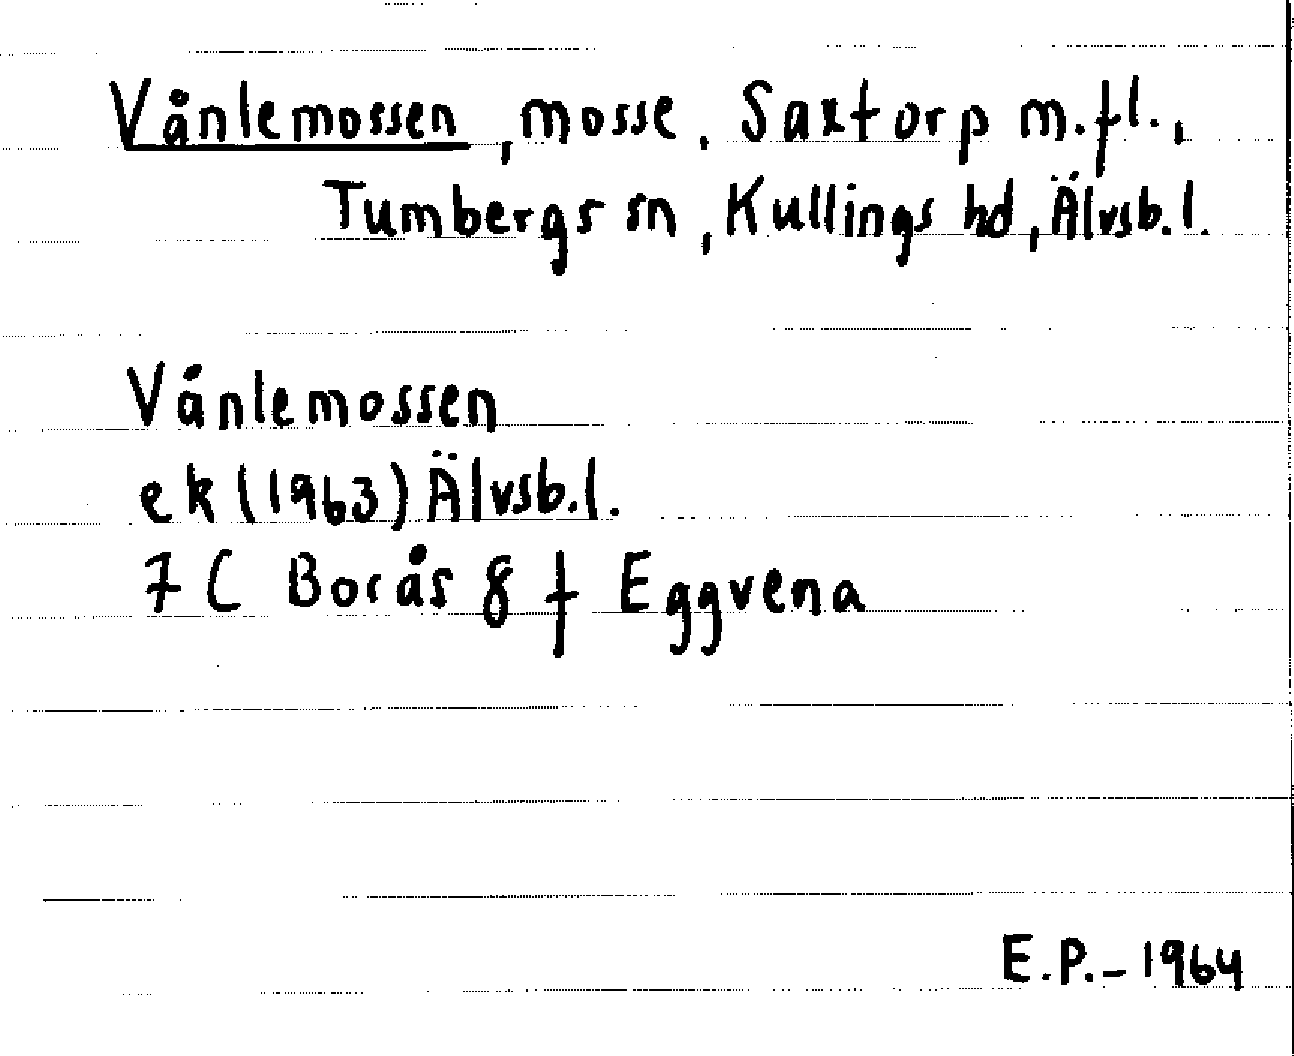 Vånlemossen, mosse, Saxtorp m.fl.,
Tumbergs sn, Kullings hd, Älvsb.l.
Vånlemossen
ek (1963) Älvsb.l.
7 C Borås 8 f Eggvena
E.P.-1964